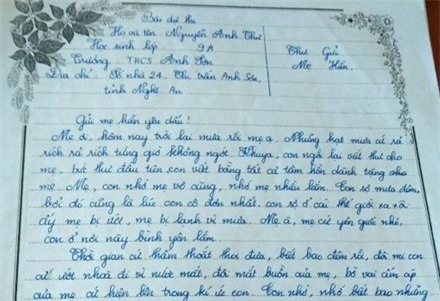 Bài dự thi
Họ và tên: Nguyễn Anh Thư
Học sinh lớp 9A
Trường: THCS Anh Sơn
Địa chỉ: Số nhà 24. Thị trấn Anh Sơn,
tỉnh Nghệ An
Thư Gửi
Mẹ Hiền.
Gửi mẹ hiền yêu dấu!
Mẹ ơi, hôm nay trời lại mưa rồi mẹ ạ. Những hạt mưa cứ rả
rích rả rích từng giờ không ngớt. Khuya, con ngồi lại viết thư cho
mẹ, bức thư đầu tiên con viết bằng tất cả tâm hồn dành tặng cho
mẹ. Mẹ, con nhớ mẹ vô cùng, nhớ mẹ nhiều lắm. Con sợ mưa đêm,
bởi đó cũng là lúc con cô đơn nhất, con sợ ở cái thế giới xa xôi
ấy mẹ bị ướt, mẹ bị lạnh vì mưa. Mẹ à, mẹ cứ yên giấc nhé,
con ở nơi này bình yên lắm.
Thời gian cứ thấm thoắt thoi đưa, biết bao đêm rồi, đôi mi con
cứ ướt nhoà đi vì nước mắt, đôi mắt buồn của mẹ, bờ vai ấm áp
của mẹ cứ hiện lên trong kí ức con. Con nhớ, nhớ biết bao những